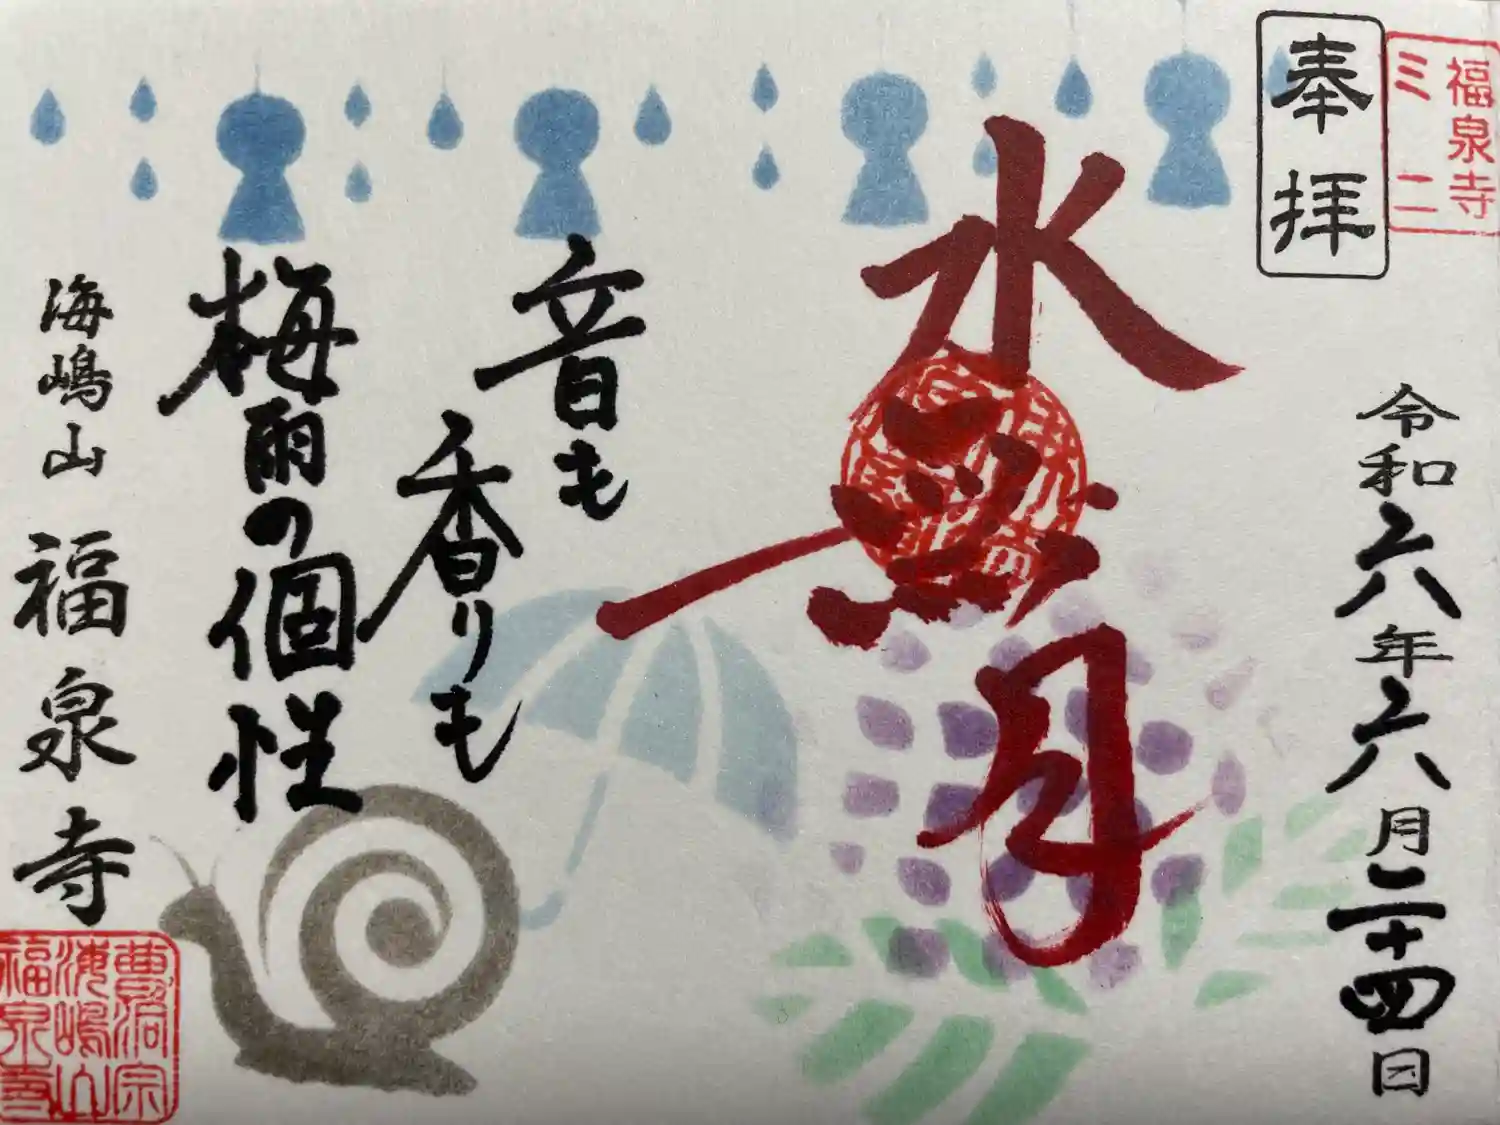 福泉寺
ミニ
奉拝
令和六年六月二十四日
水無月
音も
香りも
梅雨の個性
海嶋山 福泉寺
曹洞宗
海嶋山
福泉寺